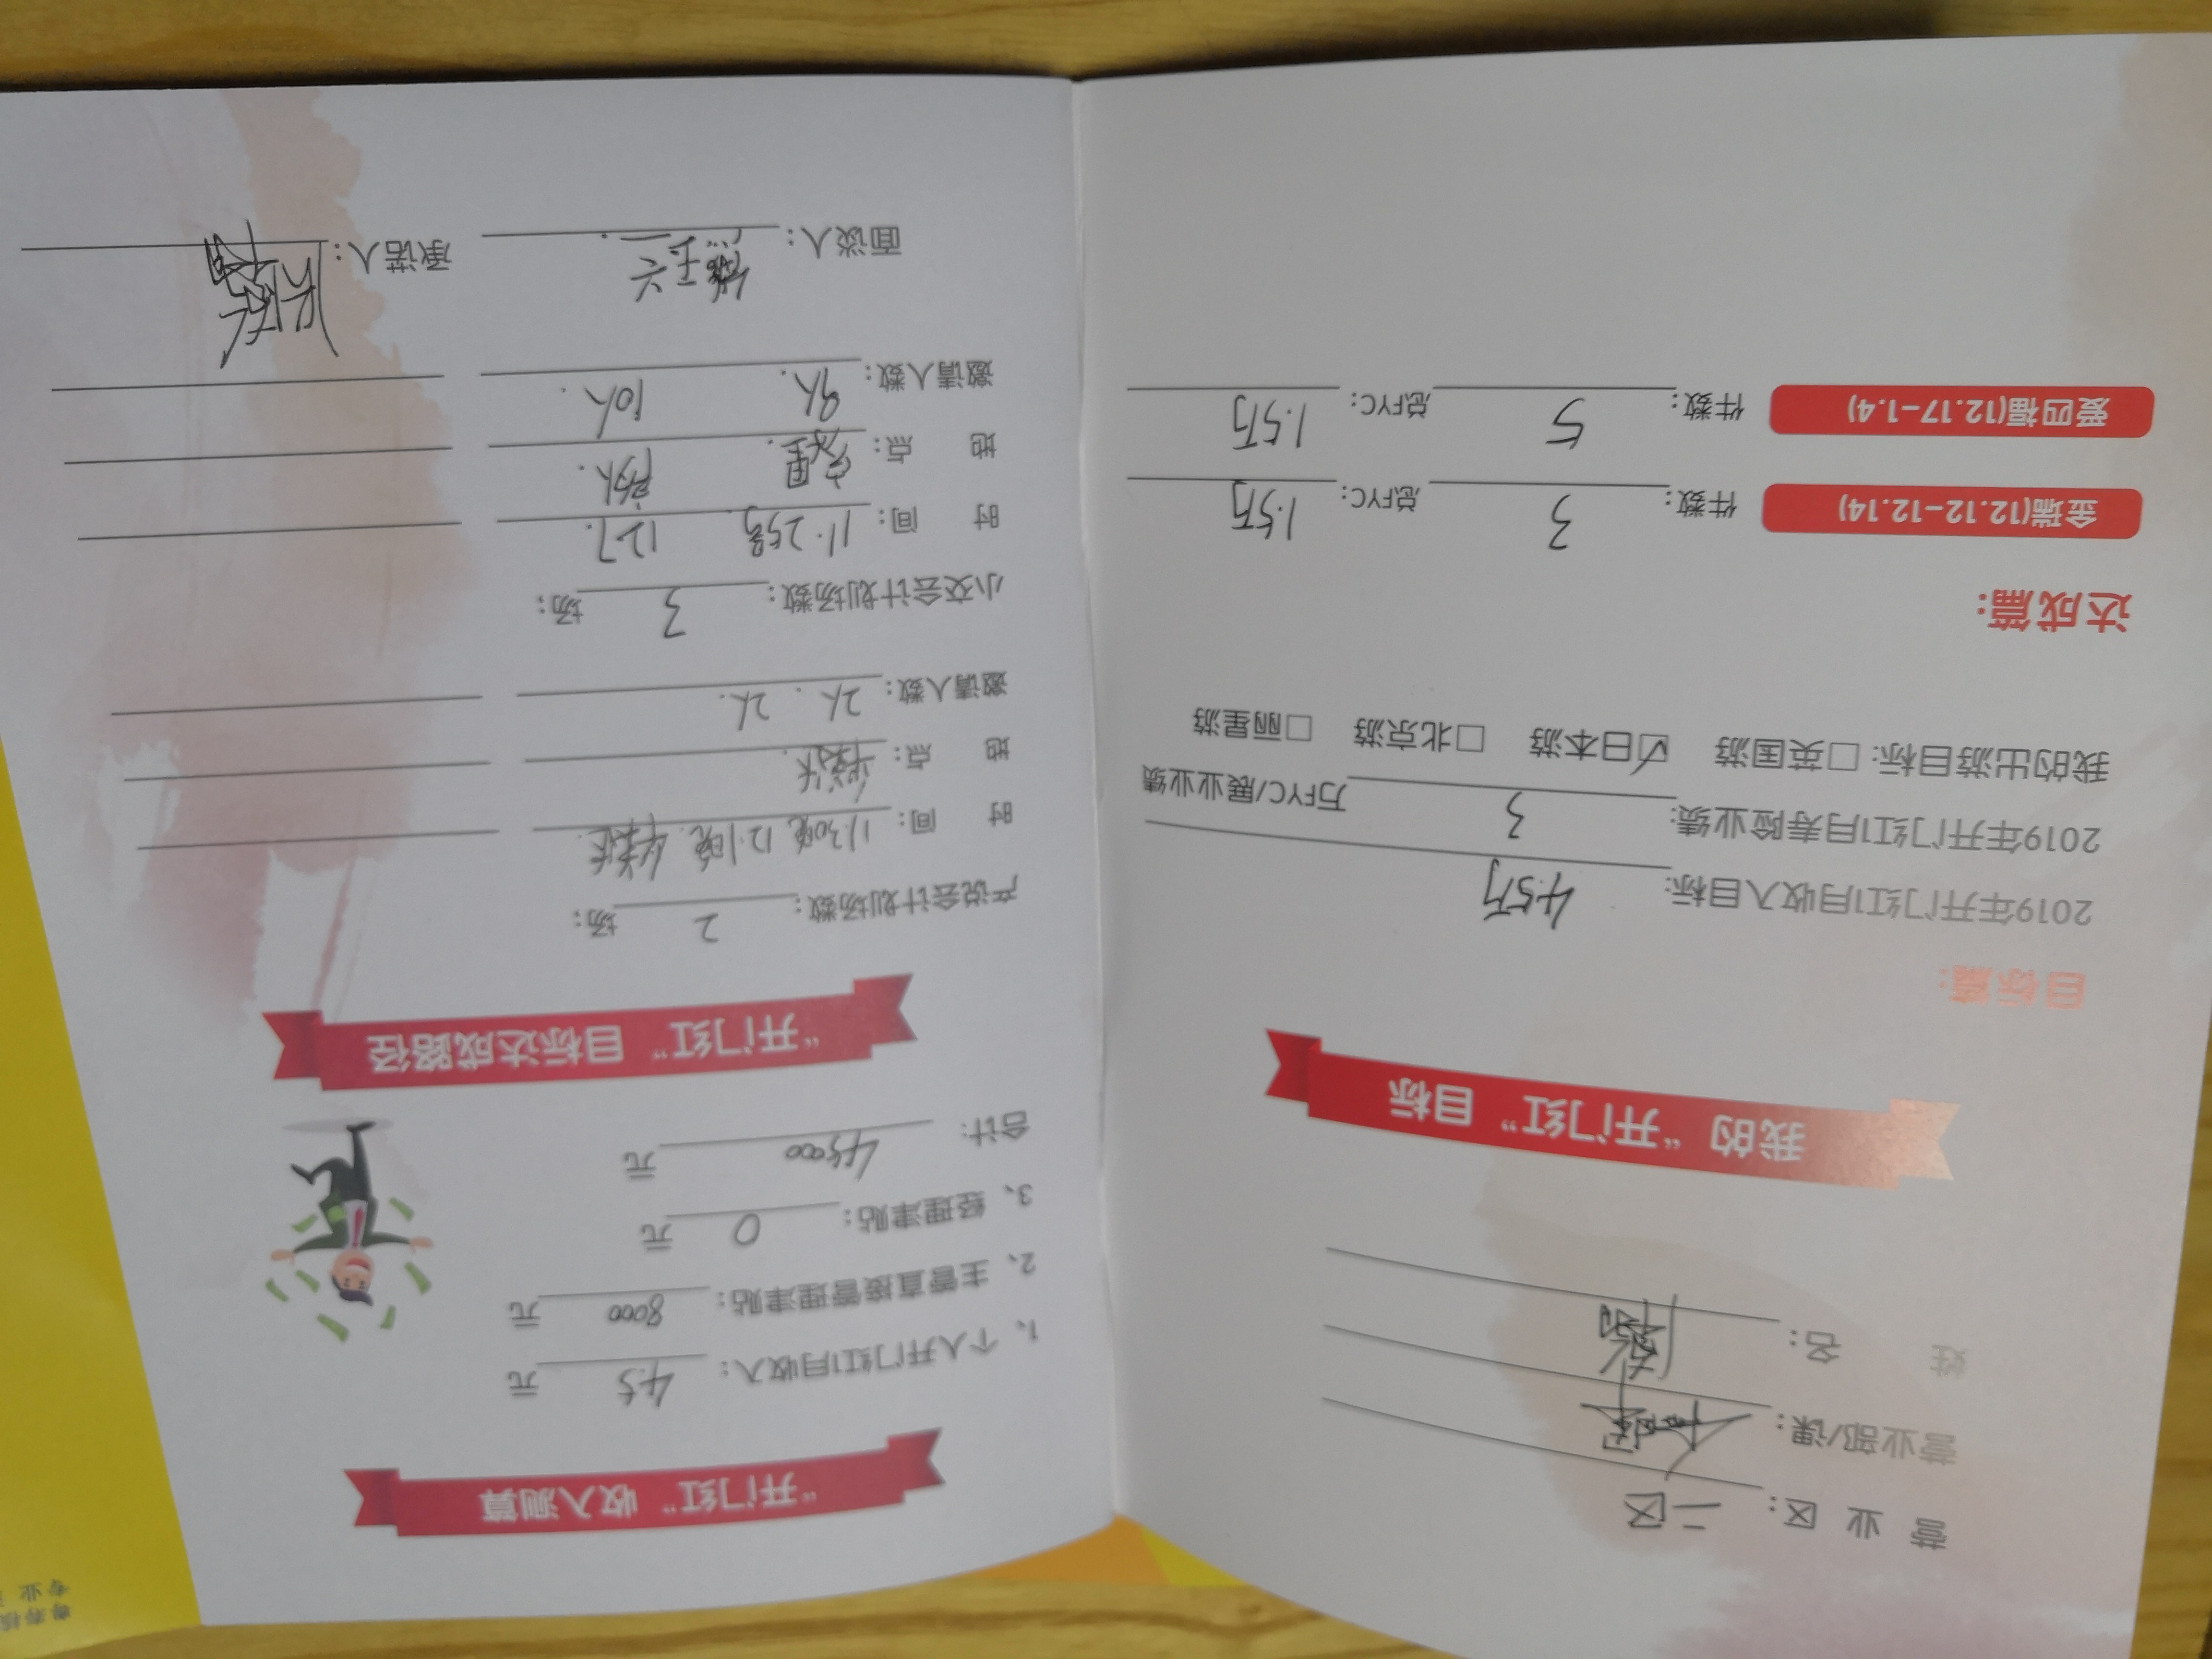 营业区：二区
营业部/课：
姓名：
我的“开门红”目标
目标篇：
2019年开门红1月收入目标：4.5万
2019年开门红1月寿险业绩：3万FYC/展业业绩
我的出游目标：□英国游 ☑日本游 □北京游 □丽星游
达成篇：
金瑞(12.12-12.14) 件数：3 总FYC：1.5万
爱四福(12.17-1.4) 件数：5 总FYC：1.5万
“开门红”收入测算
1、个人开门红1月收入：4.5元
2、主管直接管理津贴：8000元
3、经理津贴：0元
合计：45000元
“开门红”目标达成路径
产说会计划场数：2场：
时间：11.30晚 12.1晚
地点：
邀请人数：2人. 2人.
小交会计划场数：3场：
时间：11.25号. 12.7.
地点：
邀请人数：9人. 10人.
面谈人：
承诺人：
专业